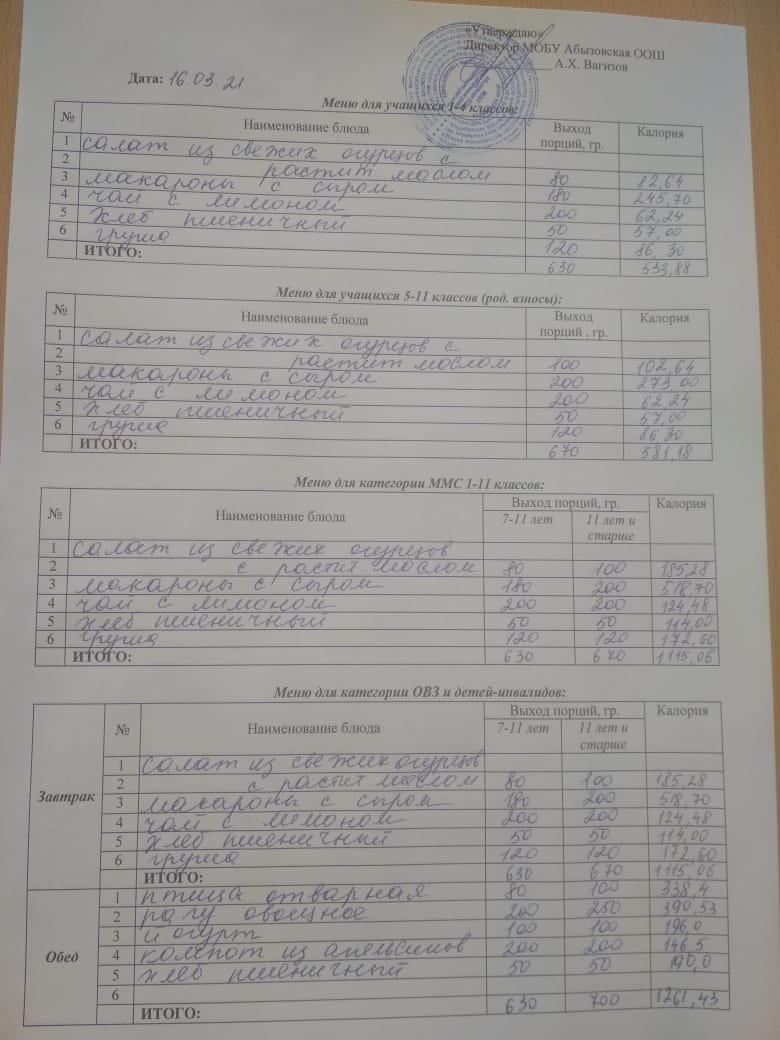 «Утверждаю»
Директор МОБУ Абызовская ООШ
А.Х. Вагизов
Дата: 16.03.21
Меню для учащихся 1-4 классов:
№ Наименование блюда Выход порций, гр. Калория
1 салат из свежих огурцов с
2 растит маслом 80 82,64
3 макароны с сыром 180 245,70
4 чай с лимоном 200 62,24
5 хлеб пшеничный 50 57,00
6 груша 120 86,30
ИТОГО: 630 533,88
Меню для учащихся 5-11 классов (род. взносы):
№ Наименование блюда Выход порций , гр. Калория
1 салат из свежих огурцов с
2 растит маслом 100 102,64
3 макароны с сыром 200 273 00
4 чай с лимоном 200 62,24
5 хлеб пшеничный 50 57,00
6 груша 120 86 30
ИТОГО: 670 581,18
Меню для категории ММС 1-11 классов:
№ Наименование блюда Выход порций, гр. Калория
7-11 лет 11 лет и старше
1 салат из свежих огурцов
2 с растит маслом 80 100 185,28
3 макароны с сыром 180 200 518,70
4 чай с лимоном 200 200 124,48
5 хлеб пшеничный 50 50 114,00
6 груша 120 120 172,60
ИТОГО: 630 670 1115,06
Меню для категории ОВЗ и детей-инвалидов:
№ Наименование блюда Выход порций, гр. Калория
7-11 лет 11 лет и старше
Завтрак
1 салат из свежих огурцов
2 с растит маслом 80 100 185,28
3 макароны с сыром 180 200 518,70
4 чай с лимоном 200 200 124,48
5 хлеб пшеничный 50 50 114,00
6 груша 120 120 172,60
ИТОГО: 630 670 1115,06
Обед
1 птица отварная 80 100 338,4
2 рагу овощное 200 250 390,53
3 йогурт 100 100 196,0
4 компот из апельсинов 200 200 146,5
5 хлеб пшеничный 50 50 190,0
6
ИТОГО: 630 700 1261,43